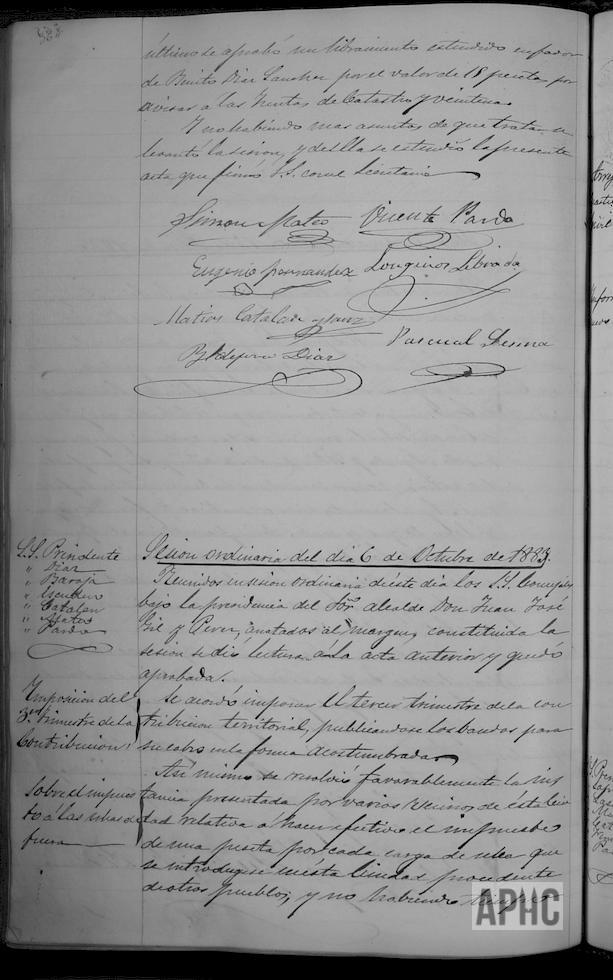 último se aprobó un libramiento estendido en favor
de Benito Diaz Sanchez por el valor de 18 pesetas por
avisar a las Juntas de Catastro y veintena.
Y no habiendo mas asuntos de que tratar se
levantó la sesion, y de ella se estendió la presente
acta que firmó S.S. con el Secretario
Simon Mateo Vicente Pardo
Eugenio Fernandez Longinos Librada
Matias Catalan y Sanz
Pascual Lesma
Diaz
S.S. Presidente
" Diaz
" Baraja
" Escudero
" Catalan
" Mateo
" Pardo
Sesion ordinaria del dia 6 de Octubre de 1883.
Reunidos en sesion ordinaria de éste dia los S.S. Concejales
bajo la presidencia del Sor. alcalde Don Juan José
Gil y Perez, anotados al margen, constituida la
sesion se dió lectura á la acta anterior y quedó
aprobada.
Imposicion del
3er trimestre de la
Contribucion.
Se acordó imponer el tercer trimestre de la con
tribucion territorial, publicandose los bandos para
su cobro en la forma acostumbrada.
Sobre el impues
to á las uvas de
fuera
Asi mismo se resolvió favorablemente la ins
tancia presentada por varios vecinos de ésta Ciu
dad relativa á hacer efectivo el impuesto
de una peseta por cada carga de uba que
se introdugese en ésta Ciudad procedente
de otros pueblos, y no habiendo
APHC